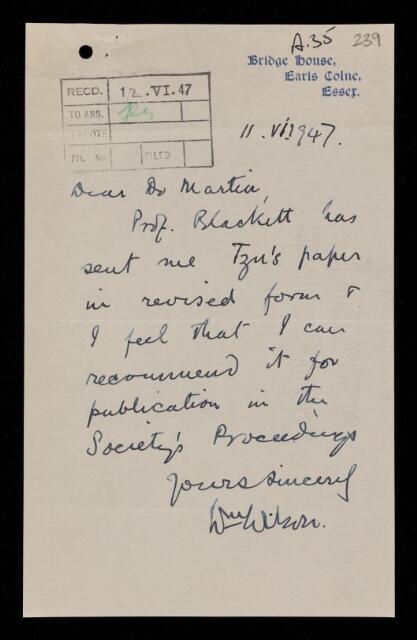 A.35 239
Bridge House,
Earls Colne,
Essex.
RECD. 12.VI.47
TO ANS.
FILE No FILED
11.VI.1947.
Dear Dr Martin,
Prof. Blackett has
sent me Tzu's paper
in revised form &
I feel that I can
recommend it for
publication in the
Society's Proceedings
Yours sincerely
Wm Wilson.